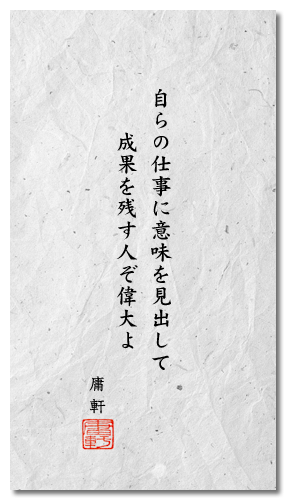 自らの仕事に意味を見出して
成果を残す人ぞ偉大よ
庸軒
庸軒